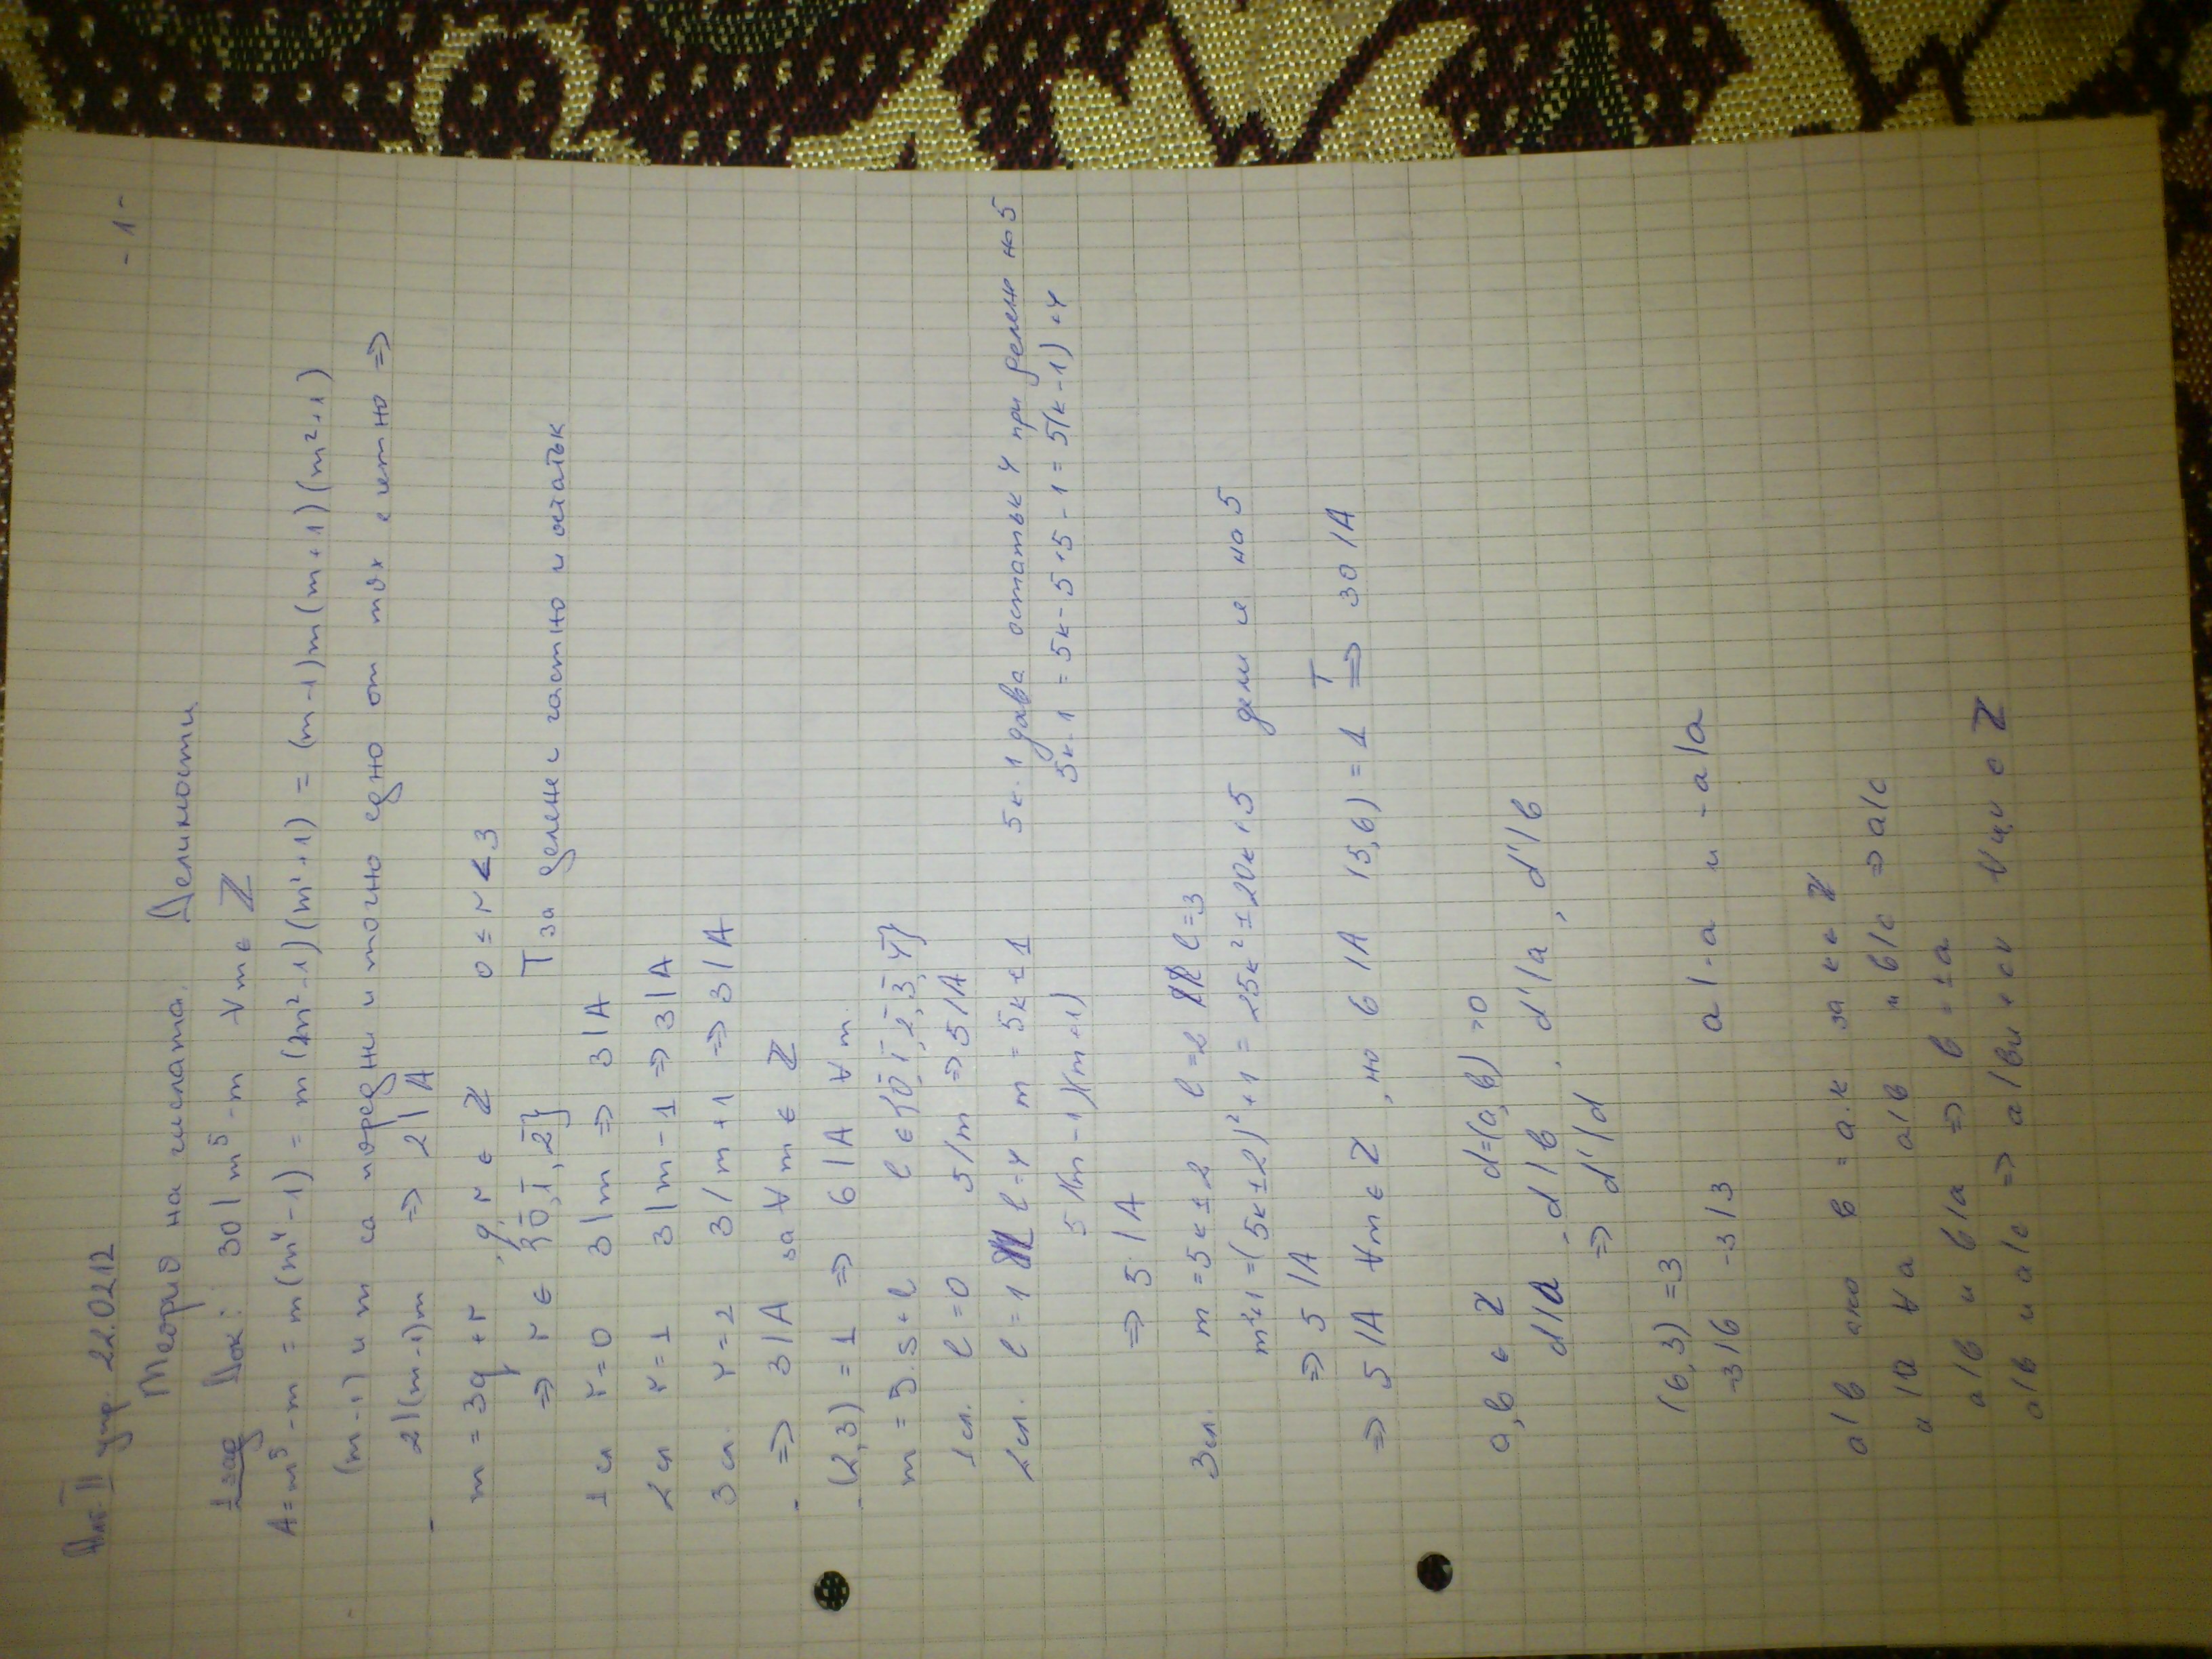 - 1 -
упр. 22.02.12
Теория на числата. Делимости
1 зад Док: 30 | m⁵ - m ∀ m ∈ ℤ
A = m⁵ - m = m(m⁴ - 1) = m(m² - 1)(m² + 1) = (m - 1)m(m + 1)(m² + 1)
(m - 1) и m са поредни и точно едно от тях е четно =>
- 2 | (m - 1)m => 2 | A
m = 3q + r, q, r ∈ ℤ 0 ≤ r < 3
=> r ∈ {0̅, 1̅, 2̅} Т за деление с частно и остатък
1 сл r = 0 3 | m => 3 | A
2 сл r = 1 3 | m - 1 => 3 | A
3 сл r = 2 3 | m + 1 => 3 | A
- => 3 | A за ∀ m ∈ ℤ
- (2, 3) = 1 => 6 | A ∀ m
m = 5.s + l l ∈ {0̅, 1̅, 2̅, 3̅, 4̅}
1 сл. l = 0 5 | m => 5 | A
2 сл. l = 1 l = 4 m = 5к ± 1 5к - 1 дава остатък 4 при делене на 5
5 | (m - 1)(m + 1) 5к - 1 = 5к - 5 + 5 - 1 = 5(к - 1) + 4
=> 5 | A
3 сл. m = 5к ± 2 l = 2 l = 3
m² + 1 = (5к ± 2)² + 1 = 25к² ± 20к + 5 дели се на 5
=> 5 | A
=> 5 | A ∀ m ∈ ℤ, но 6 | A (5, 6) = 1 =>ᵀ 30 | A
a, b ∈ ℤ d = (a, b) > 0
d | a, d | b, d' | a, d' | b
=> d' | d
(6, 3) = 3
-3 | 6 -3 | 3 a | -a и -a | a
a | b ако b = a.к за к ∈ ℤ
a | a ∀ a a | b и b | c => a | c
a | b и b | a => b = ± a
a | b и a | c => a | bu + cv ∀ u, v ∈ ℤ